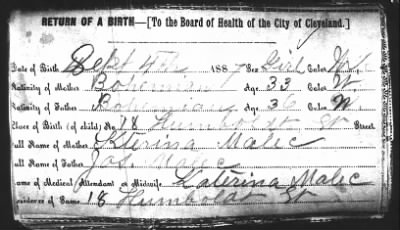 RETURN OF A BIRTH—[To the Board of Health of the City of Cleveland.]
Date of Birth Sept 4th 1887 Sex Girl Color W
Nativity of Mother Bohemian Age 33 Color W.
Nativity of Father Bohemian Age 36 Color W
Place of Birth (of child) No. 18 Humboldt St Street
Full Name of Mother Katerina Malec
Full Name of Father Jos Malec
Name of Medical Attendant or Midwife Katerina Malec
Residence of Same 18 Humboldt St